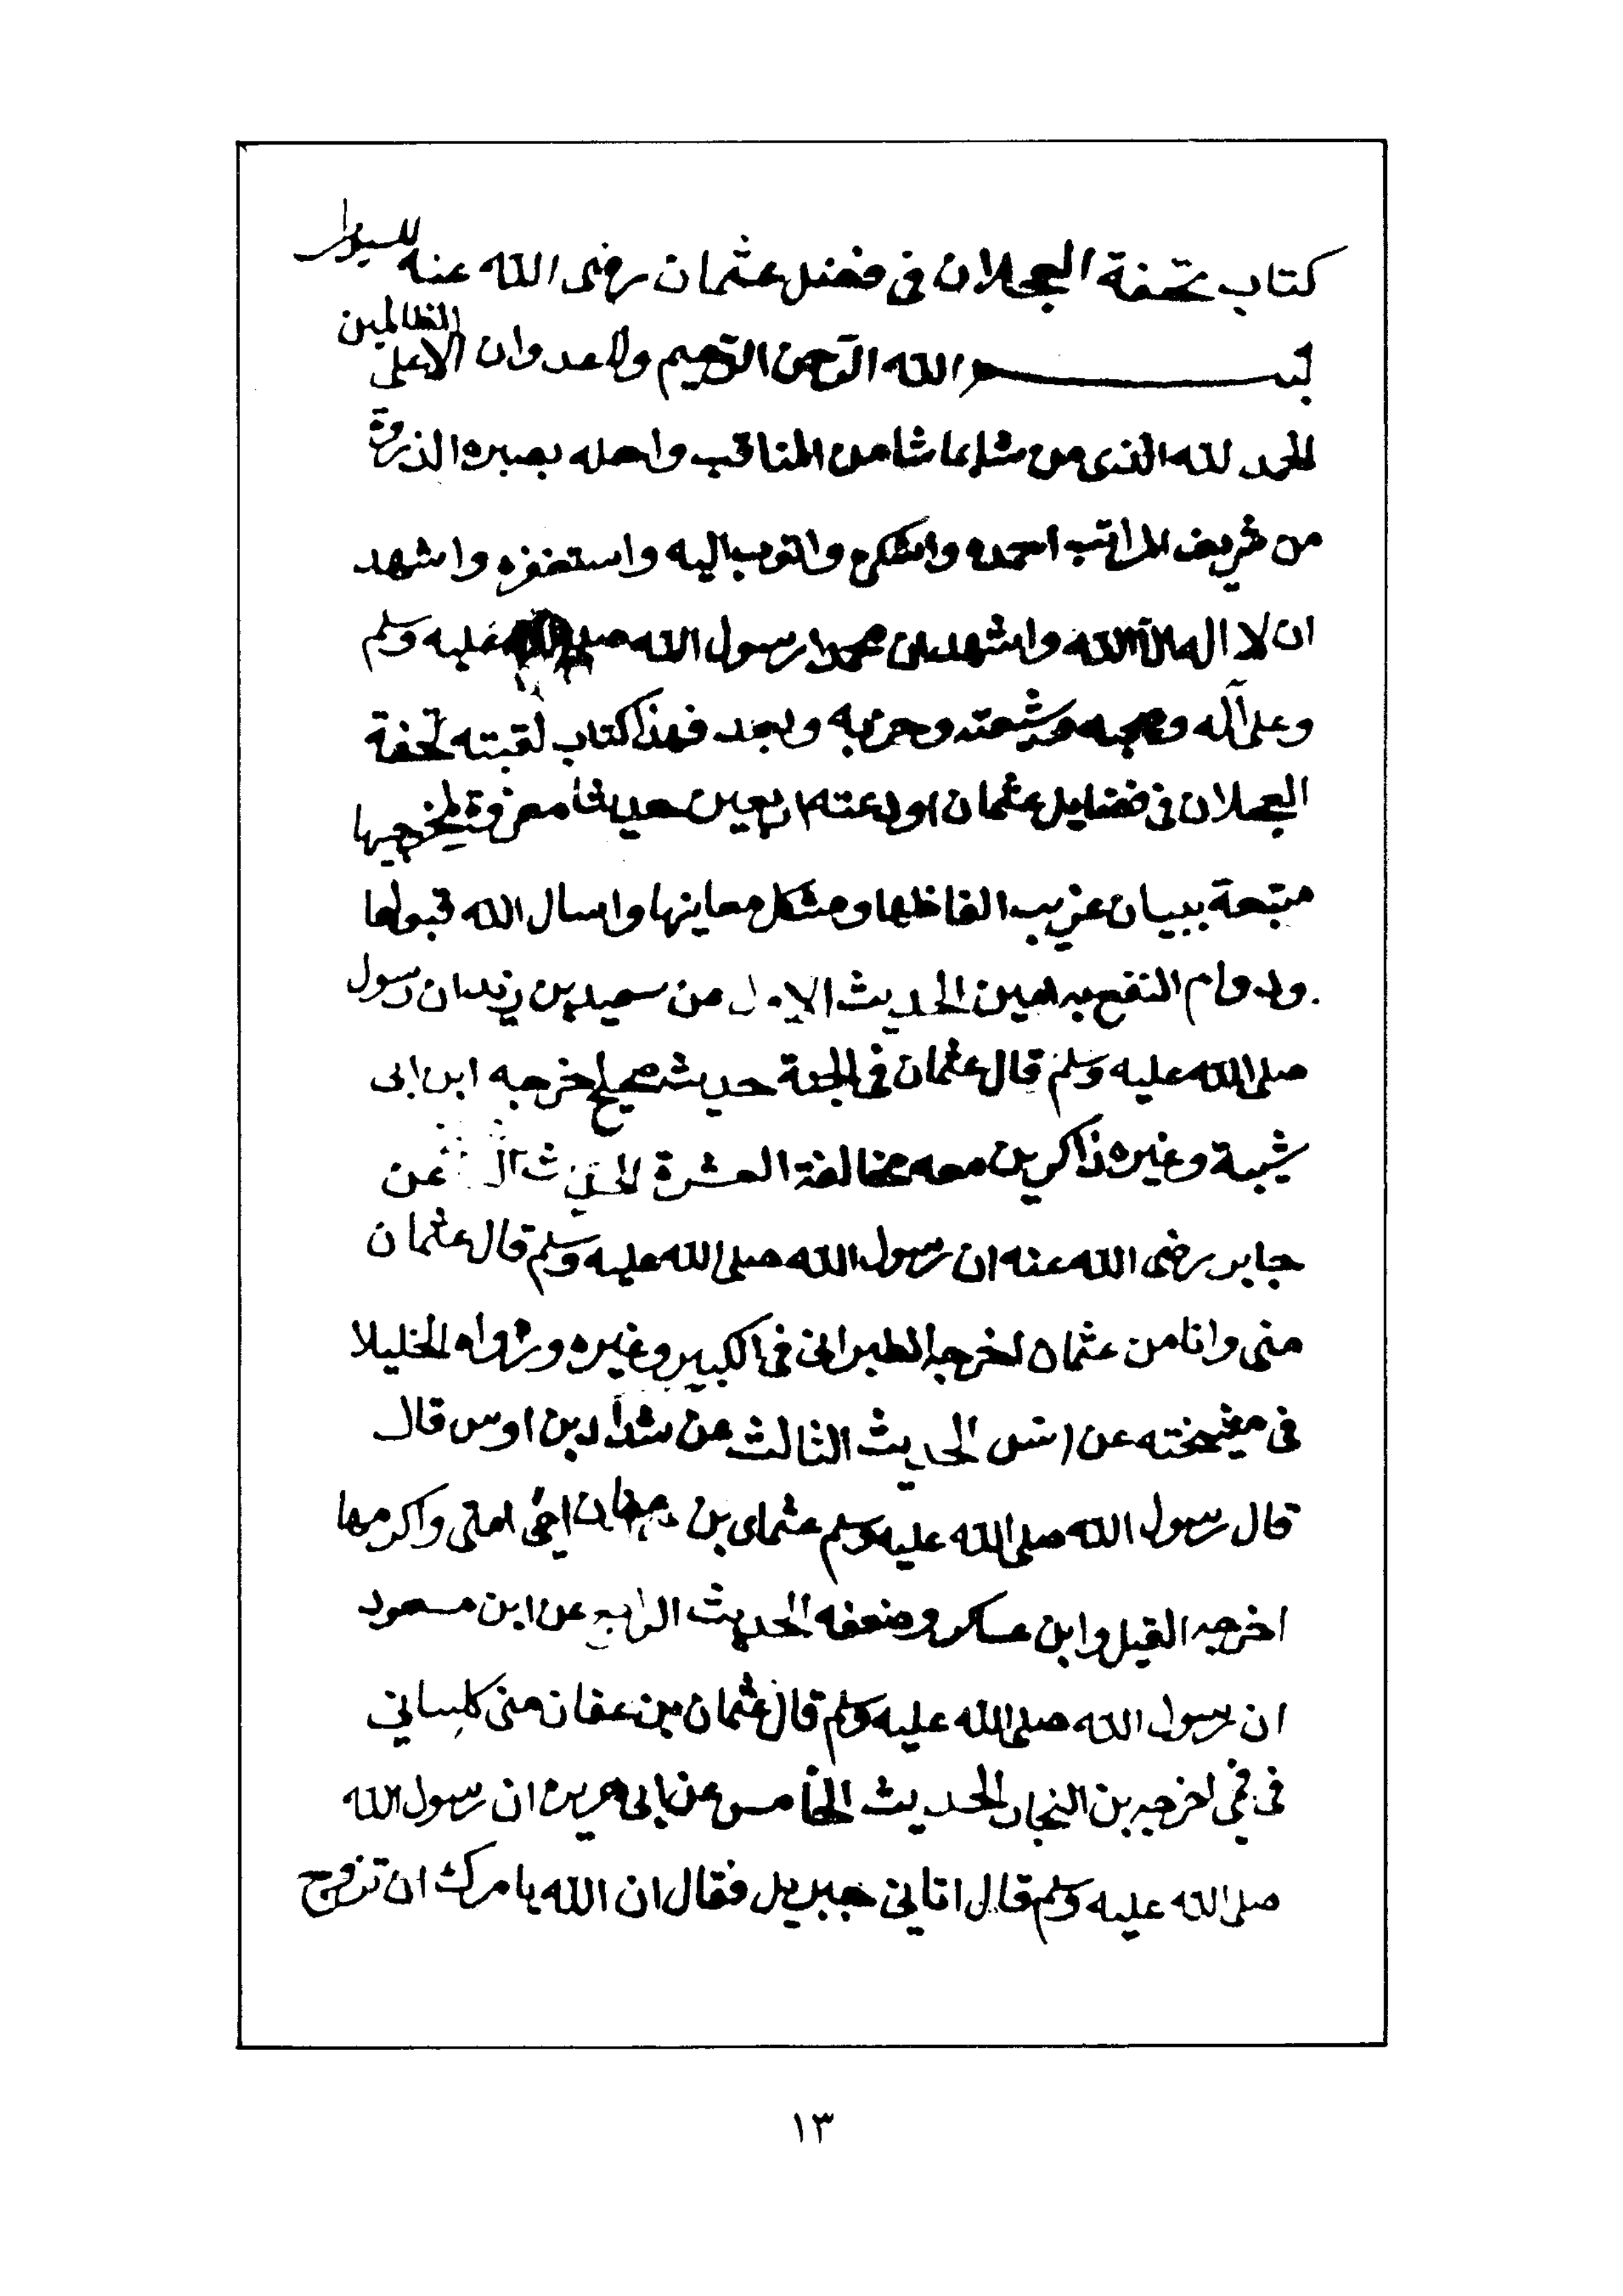 كتاب تحفة العجلان فى فضل عثمان رضى الله عنه للسيوطى
بسم الله الرحمن الرحيم ولا عدوان الا على الظالمين
الحمد لله الذى من شا بما شا من المناقب واحله بصبره الذروة
من شريف المراتب احمده واشكره واتوب اليه واستغفره واشهد
ان لا اله الا الله واشهد ان محمدا رسول الله صلى الله عليه وسلم
وعلى آله وصحبه وشيعته وحزبه وبعد فهذا كتاب لقبته تحفة
العجلان فى فضايل عثمان اودعته اربعين حديثا معزوة لمخرجيها
متبعة ببيان غريب الفاظها ومشكل معاينها واسال الله قبولها
ودوام النفع به امين الحديث الاول عن سعيد بن زيد ان رسول
صلى الله عليه وسلم قال عثمان فى الجنة حديث صحيح اخرجه ابن ابى
شيبة وغيره ذاكرين معه العشرة الحديث عن
جابر رضى الله عنه ان رسول الله صلى الله عليه وسلم قال عثمان
منى وانا من عثمان اخرجه الطبرانى فى الكبير وغيره ورواه الخليلا
فى مشيخته عن انس الحديث الثالث عن شداد بن اوس قال
قال رسول الله صلى الله عليه وسلم عثمان بن عفان احيى امتى واكرمها
اخرجه القيل وابن عساكر وضعفه الحديث الرابع عن ابن مسعود
ان رسول الله صلى الله عليه وسلم قال عثمان بن عفان منى كلسانى
فى فمى اخرجه بن النجار الحديث الخامس عن ابى هريرة ان رسول الله
صلى الله عليه وسلم قال اتانى جبريل فقال ان الله يامرك ان تزوج
١٣